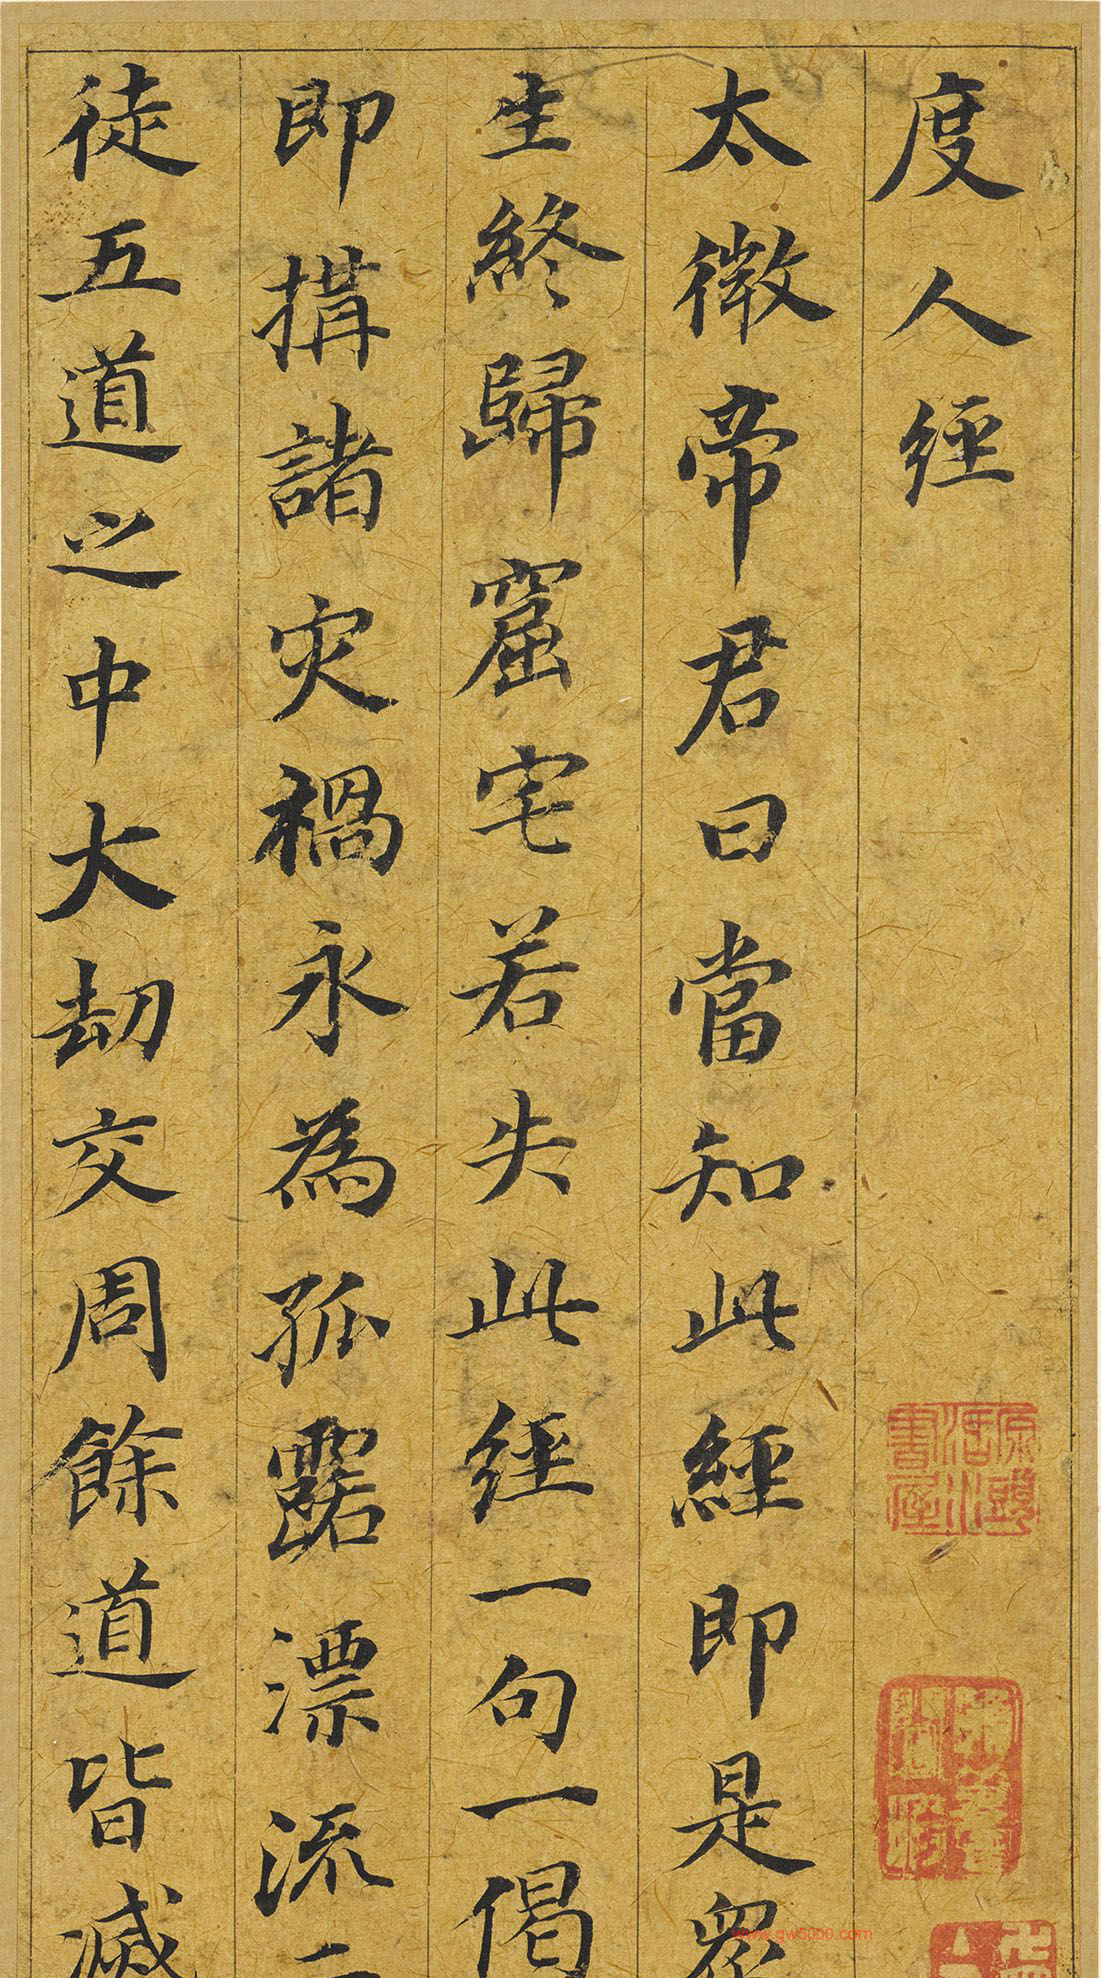 度人經
太微帝君曰當知此經即是眾
生終歸窟宅若失此經一句一偈
即搆諸灾禍永為孤露漂流二
徒五道之中大劫交周餘道皆滅
www.gw5000.com